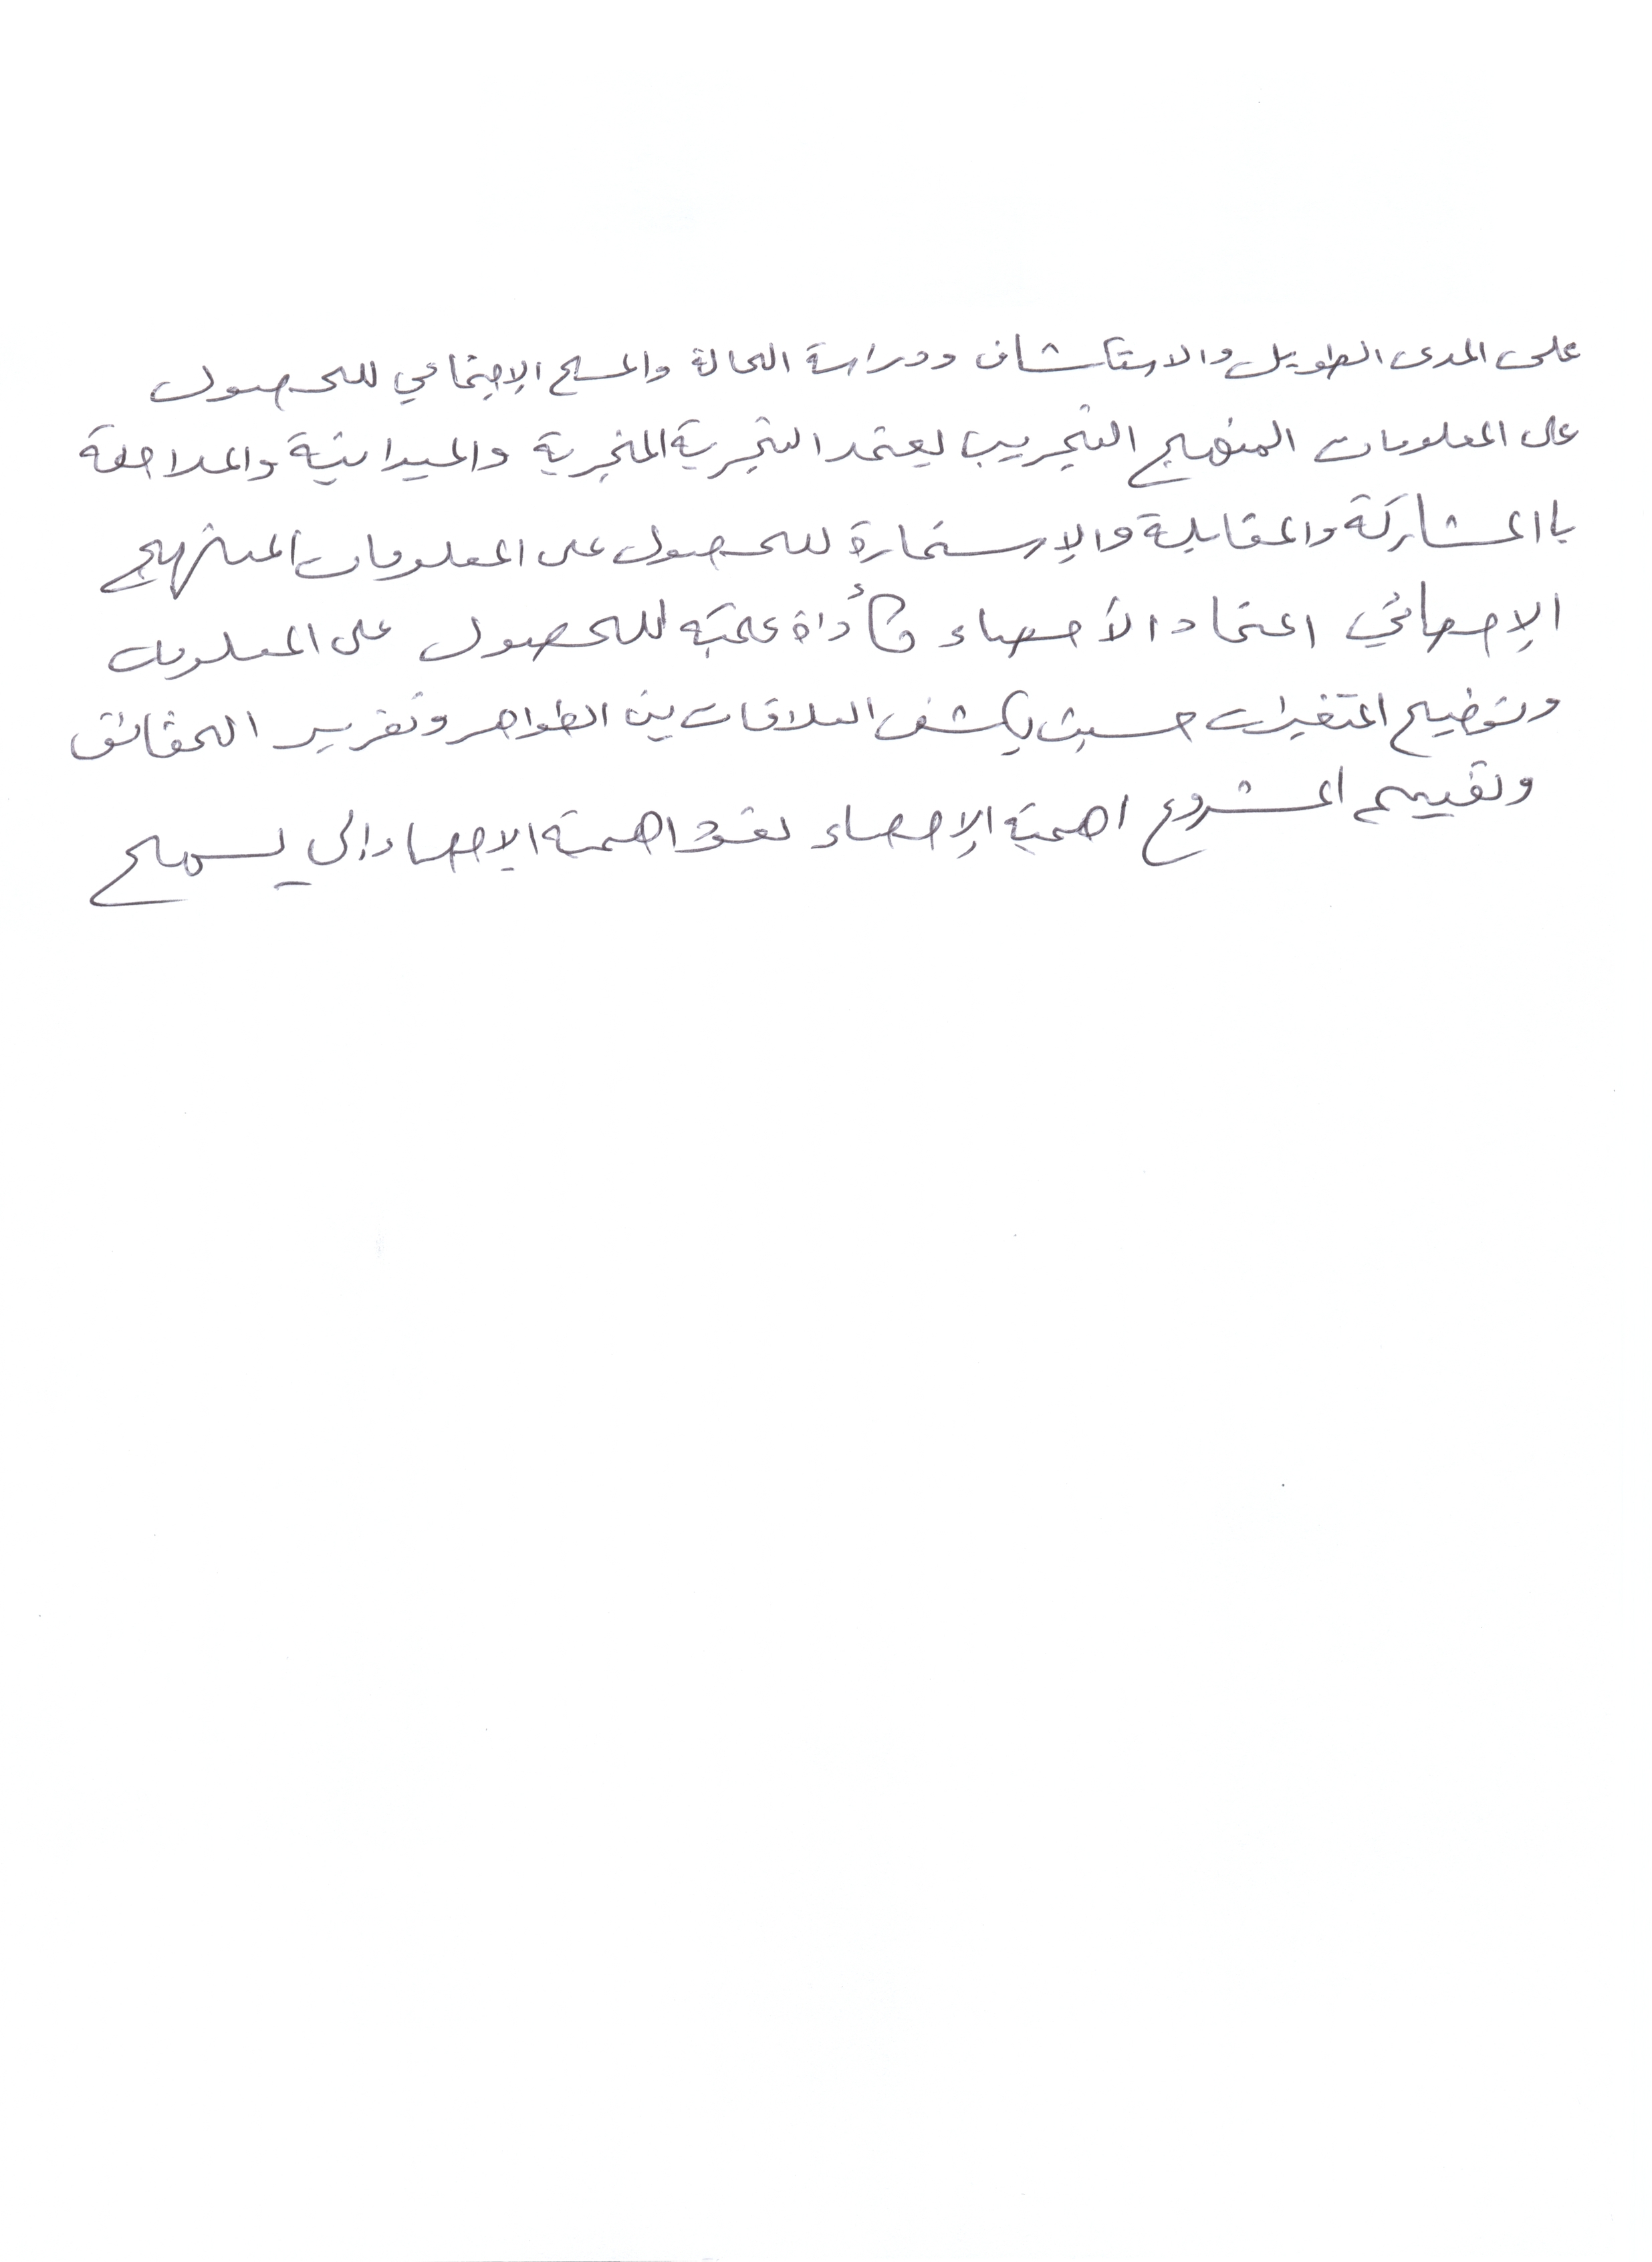 على المدى الطويل والاستكشاف ودراسة الحالة والمسح الإجتماعي للحصول
على المعلومات المنهج التجريب يعتمد التجربة المخبرية والميدانية والملاحظة
باالمشاركة والمقابلة والإستمارة للحصول على المعلومات المنهج
الإحصائي اعتماد الأحصاء كأداة علمية للحصول على المعلومات
وتوضيح المتغيرات حسبت يكشف العلاقات بين الظواهر وتقرير الحقائق
وتقييم المشروع اهمية الإحصاء اهمية الإحصاء إلى يسمح